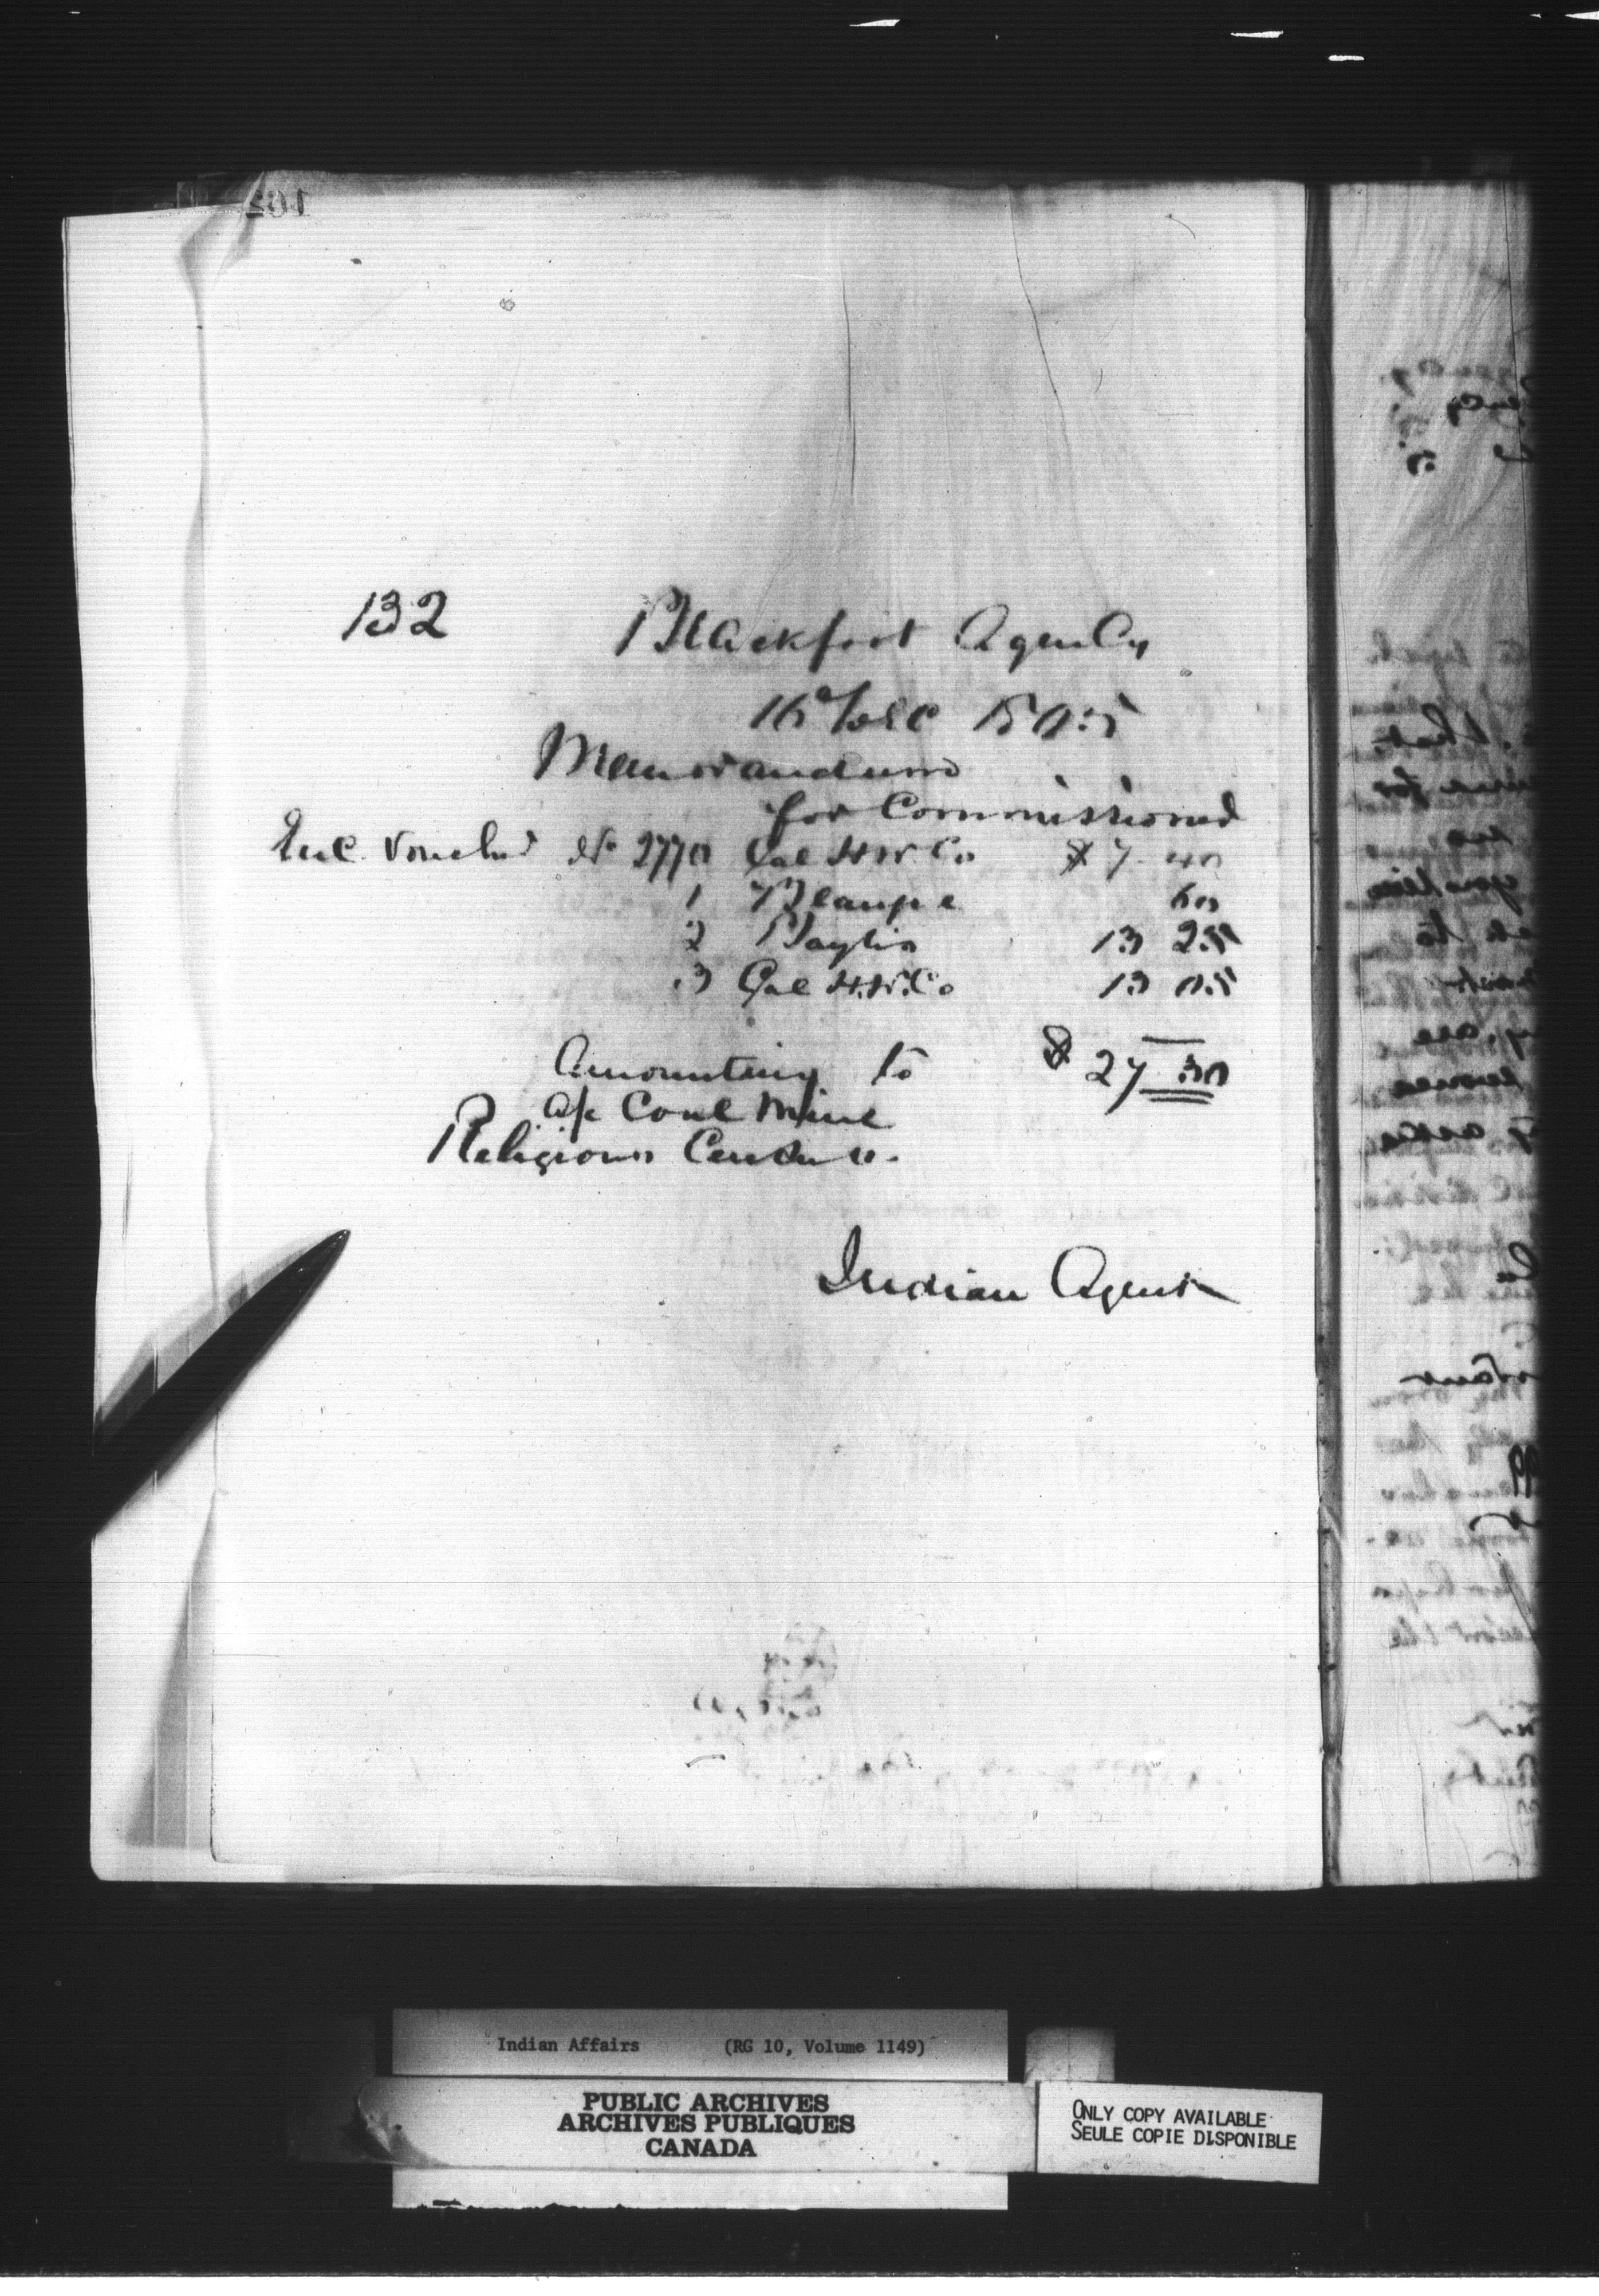 132
Blackfoot Agency
16th Dec 1895
Memorandum
for Commissioner
Enc. Voucher No 2770 Cal H.W. Co $ 7 40
1 Beaupre 60
2 13 25
3 Cal H.W. Co 13 05
Amounting to $ 27 30
a/c Coal Mine
Religious Census.
Indian Agent
Indian Affairs (RG 10, Volume 1149)
PUBLIC ARCHIVES
ARCHIVES PUBLIQUES
CANADA
ONLY COPY AVAILABLE
SEULE COPIE DISPONIBLE